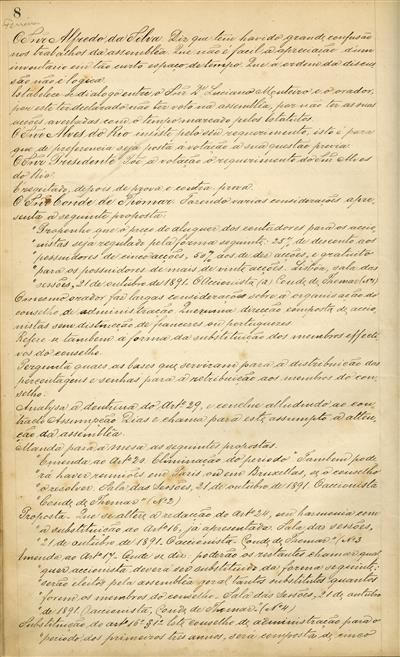 8
Ferreira
O Snr Alfredo da Silva. Diz que tem havido grande confusão
nos trabalhos da assembléa. Que não é facil a apreciação d'um
inventario em tão curto espaço de tempo. Que a ordem da discus
são não é logica.
Estabelece-se dialogo entre o Snr Luciano Monteiro e o orador,
por este ter declarado não ter voto na assembléa, por não ter as suas
acções averbadas com o tempo marcado pelos Estatutos.
O Snr Alves do Rio insiste pelo seu requerimento, isto é para
que de preferencia seja posta á votação a sua questão previa.
O Snr Presidente Põe á votação o requerimento do Snr Alves
do Rio.
É regeitado, depois de prova e contra prova.
O Snr Conde de Thomar. Fazendo varias considerações apre-
senta a seguinte proposta:
"Proponho que o preço do aluguer dos contadores para os accio
"nistas seja regulado pela forma seguinte: 25% de desconto aos
"possuidores de cinco acções, 50% aos de dez acções, e gratuito
"para os possuidores de mais de vinte acções. Lisboa, sala das
"sessões, 21 de outubro de 1891. O Accionista (a) Conde de Thomar (Nº1)
O mesmo orador faz largas considerações sobre a organisação do
conselho de administração. Quer uma direcção composta de accio
nistas sem distincção de francezes ou portuguezes.
Refere-se tambem á forma da substituição dos membros effecti
vos do conselho.
Pergunta quaes as bases que serviram para a distribuição das
porcentagens e senhas para a retribuição aos membros do con-
selho.
Analysa a doutrina do Artº 29, e conclue alludindo ao con-
tracto Assumpção Dias e chama para este assumpto a atten
ção da assembléa.
Manda para a mesa as seguintes propostas.
"Emenda ao Artº 28 Eliminação do periodo "Tambem pode-
"rá haver reuniões em Paris ou em Bruxellas, se o conselho
"o resolver. Sala das Sessões, 21 de outubro de 1891 O accionista
"Conde de Thomar" (Nº 2)
Proposta. Que se altere a redacção do Artº 24, em harmonia com
"a substituição ao Artº 16, já apresentada. Sala das sessões,
"21 de outubro de 1891. O accionista. Conde de Thomar" (Nº 3
Emenda ao Artº 17. Onde se diz poderão os restantes chamar qual
"quer accionista deverá ser substituido da forma seguinte:
"serão eleitos pela assembléa geral tantos substitutos quantos
"forem os membros do conselho. Sala das Sessões, 21 de outubro
"de 1891. O accionista, Conde de Thomar" (Nº 4)
Substituição ao artº 16º § 1º Este conselho de administração para o
"periodo dos primeiros tres annos, será composta de cinco